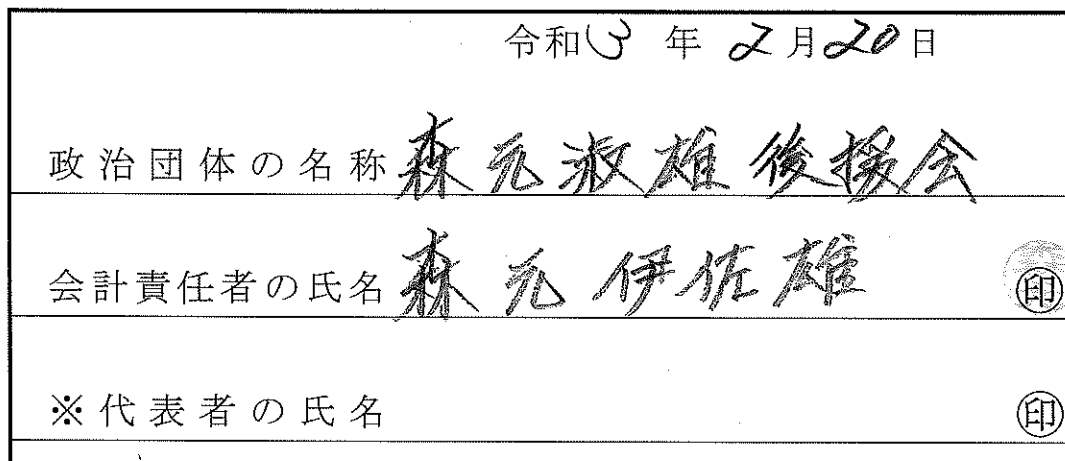 令和3年2月20日
政治団体の名称 森元淑雄後援会
会計責任者の氏名 森元伊佐雄 ㊞
※代表者の氏名 ㊞